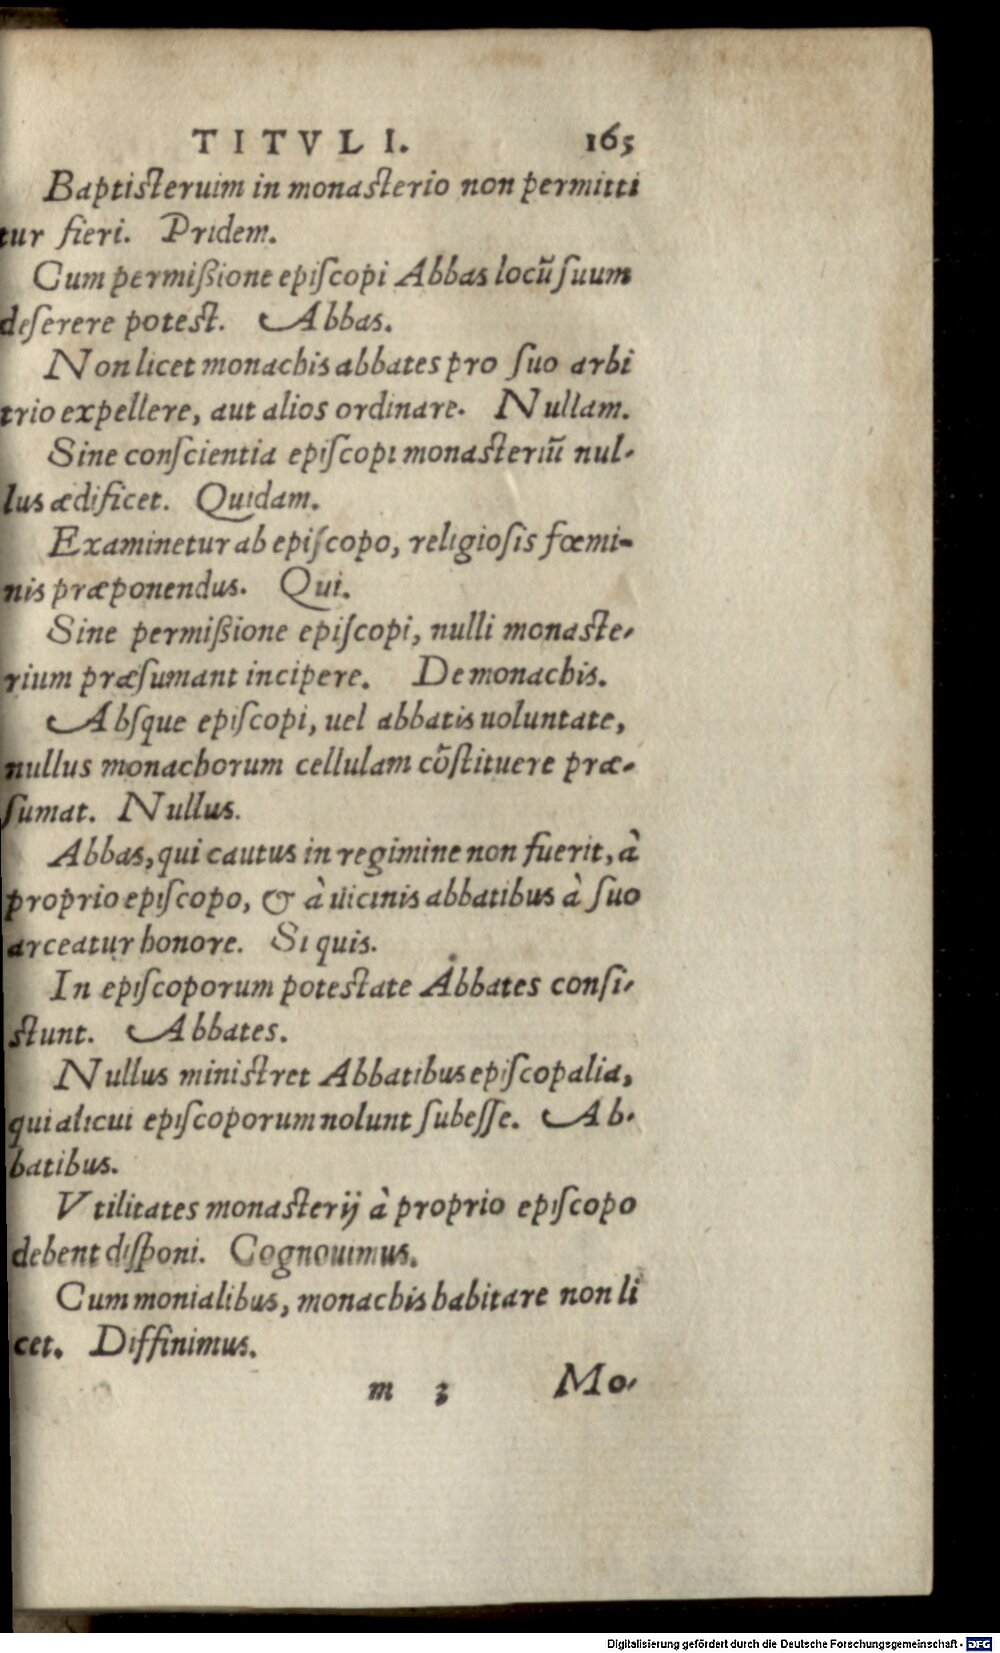 TITVLI. 165
Baptisteruim in monasterio non permitti
tur fieri. Pridem.
Cum permißione episcopi Abbas locũ suum
deserere potest. Abbas.
Non licet monachis abbates pro suo arbi
trio expellere, aut alios ordinare. Nullam.
Sine conscientia episcopi monasteriũ nul-
lus ædificet. Quidam.
Examinetur ab episcopo, religiosis fœmi-
nis præponendus. Qui.
Sine permißione episcopi, nulli monaste-
rium præsumant incipere. De monachis.
Absque episcopi, uel abbatis uoluntate,
nullus monachorum cellulam cõstituere præ-
sumat. Nullus.
Abbas, qui cautus in regimine non fuerit, à
proprio episcopo, & à uicinis abbatibus à suo
arceatur honore. Si quis.
In episcoporum potestate Abbates consi-
stunt. Abbates.
Nullus ministret Abbatibus episcopalia,
qui alicui episcoporum nolunt subesse. Ab-
batibus.
Vtilitates monasterij à proprio episcopo
debent disponi. Cognouimus.
Cum monialibus, monachis habitare non li
cet. Diffinimus.
m 3 Mo-
Digitalisierung gefördert durch die Deutsche Forschungsgemeinschaft - DFG